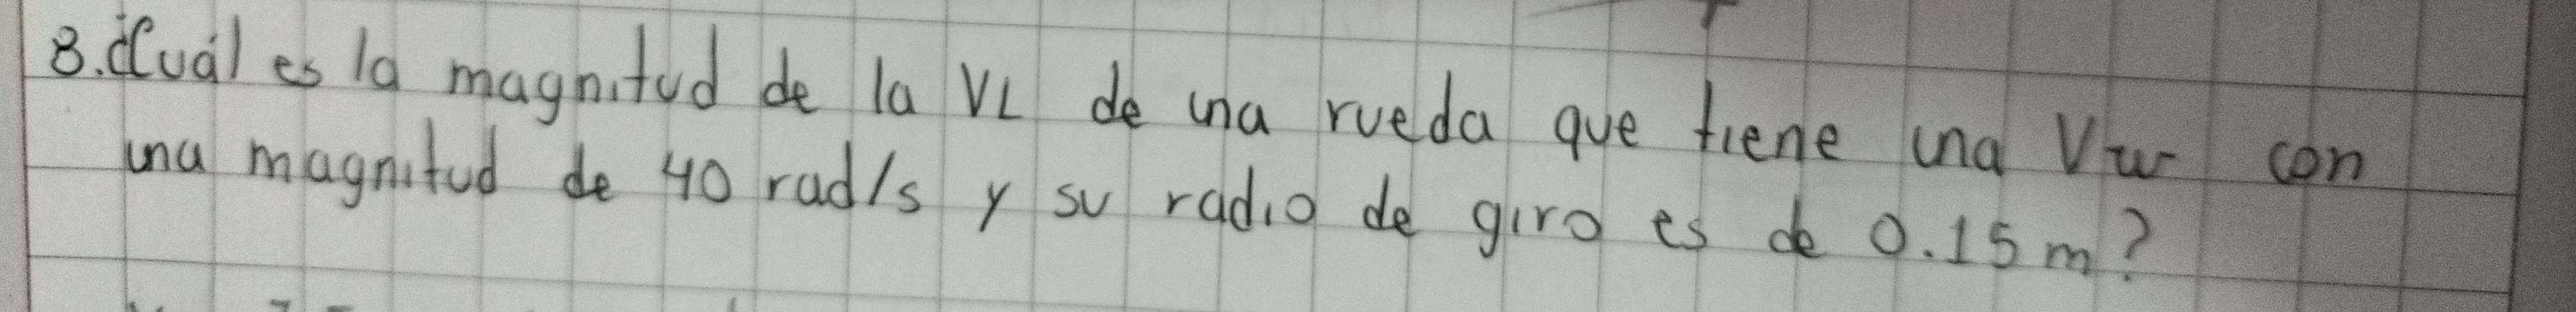 8. ¿Cuál es la magnitud de la VL de una rueda que tiene una Vw con
una magnitud de 40 rad/s y su radio de giro es de 0.15 m?